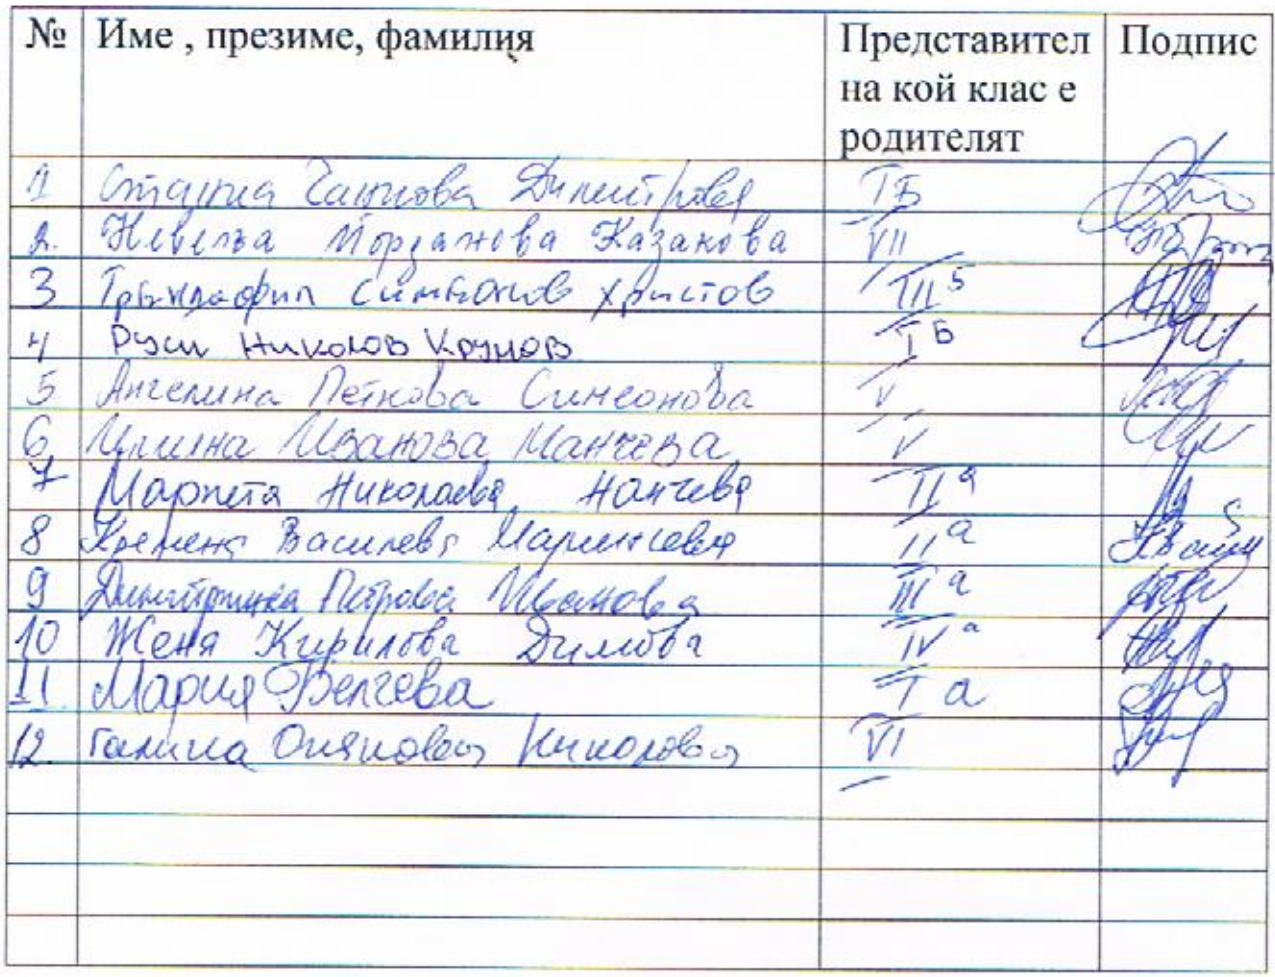 № Име , презиме, фамилия Представител на кой клас е родителят Подпис
1 Димитрова I Б
2. Йорданова Казакова VII
3 Трендафил Симеонов Христов III Б
4 Руси Николов Крумов I Б
5 Ангелина Петкова Симеонова V
6 Илина Иванова Манчева V
7 Мариета Николаева Нанчева II а
8 Василева Маринчева II а
9 Димитринка Петрова Иванова III а
10 Женя Кирилова Димова IV а
11 Мария Велчева I а
12. Галина Николова VI